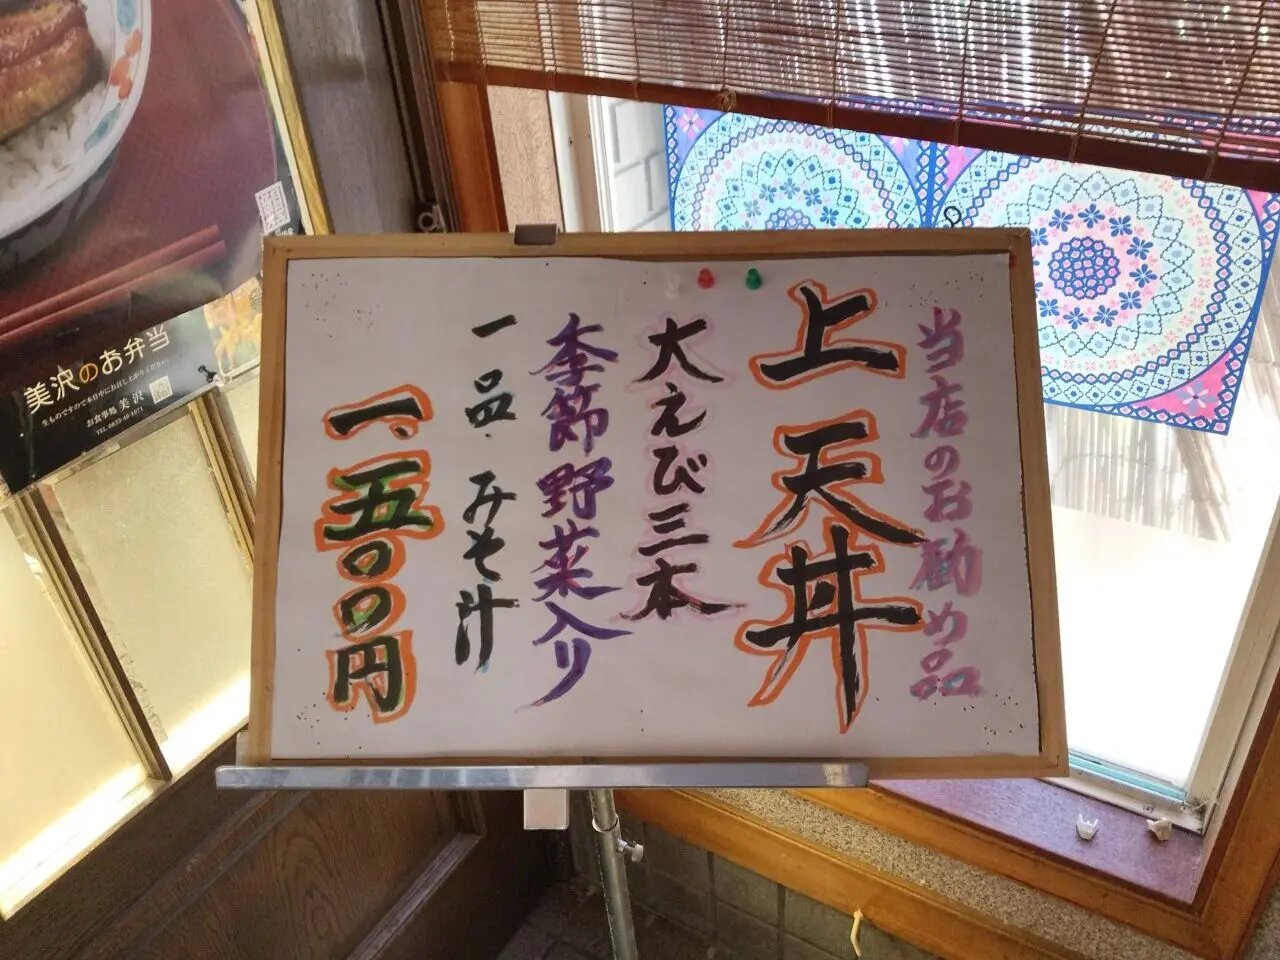 当店のお勧め品
上天丼
大えび三本
季節野菜入り
一品.みそ汁
一、五〇〇円
美沢のお弁当
生ものですので本日中にお召し上がりください
お食事処 美沢